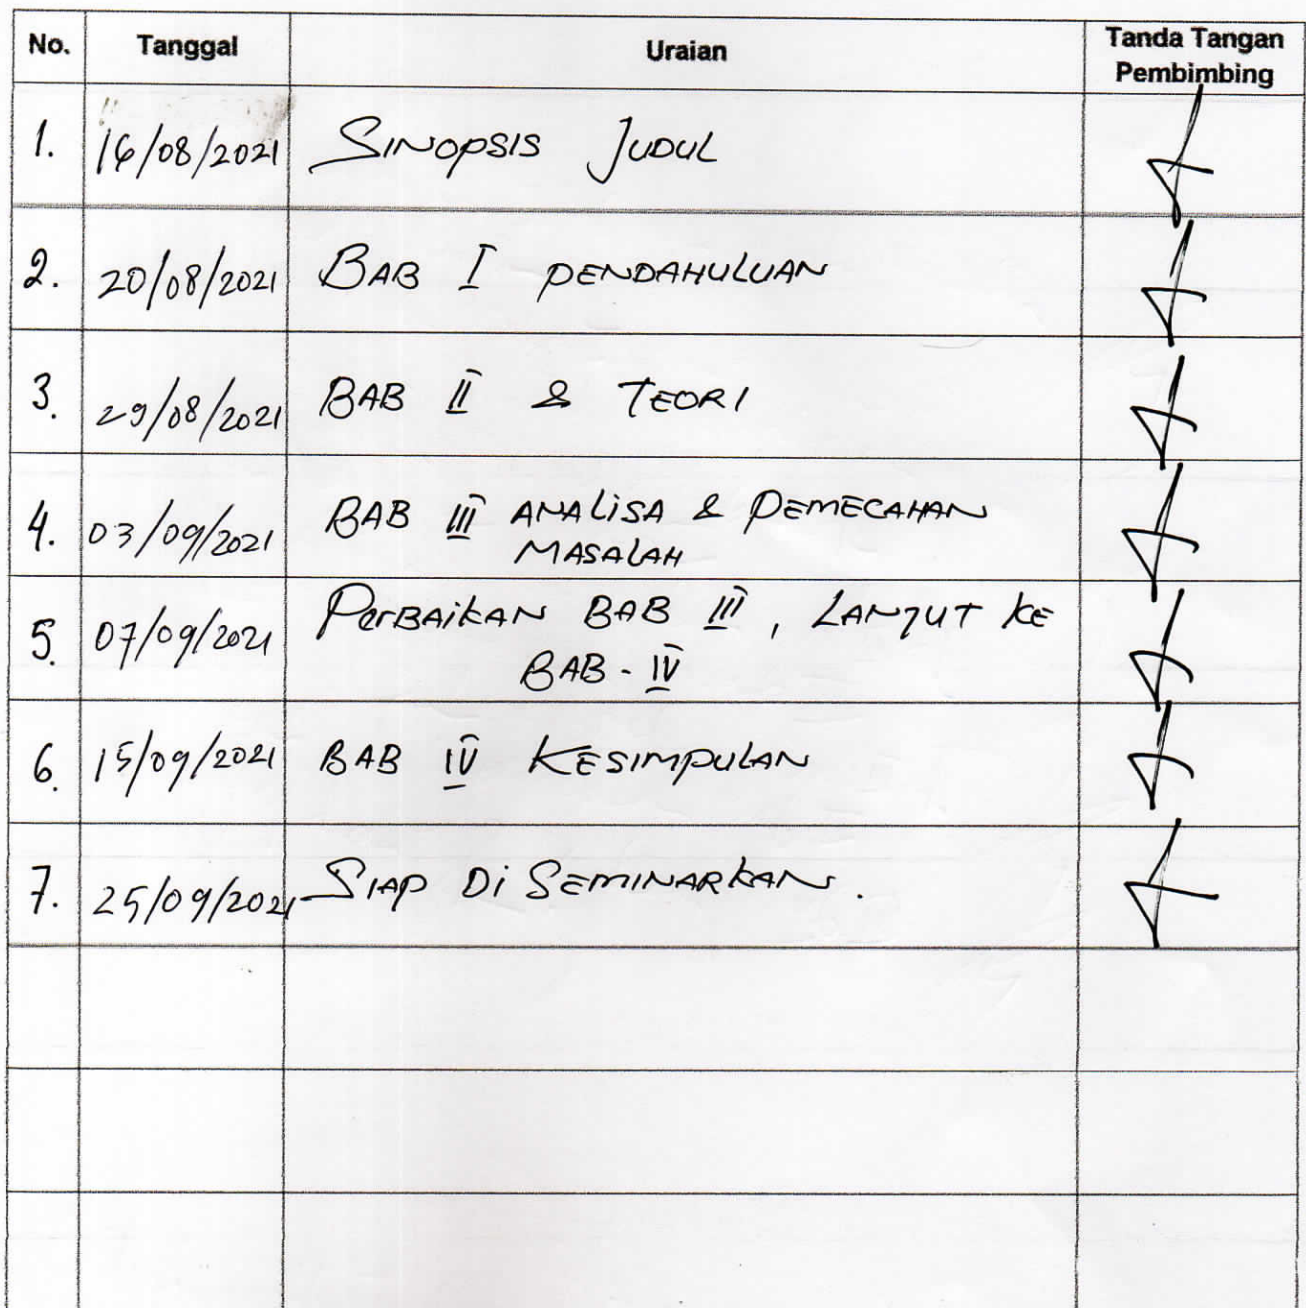 No. Tanggal Uraian Tanda Tangan
Pembimbing
1. 16/08/2021 SINOPSIS JUDUL
2. 20/08/2021 BAB I PENDAHULUAN
3. 29/08/2021 BAB II & TEORI
4. 03/09/2021 BAB III ANALISA & PEMECAHAN
MASALAH
5. 07/09/2021 PerBAiKAN BAB III, LANJUT KE
BAB - IV
6. 15/09/2021 BAB IV KESIMPULAN
7. 25/09/2021 SIAP Di SEMINARKAN.